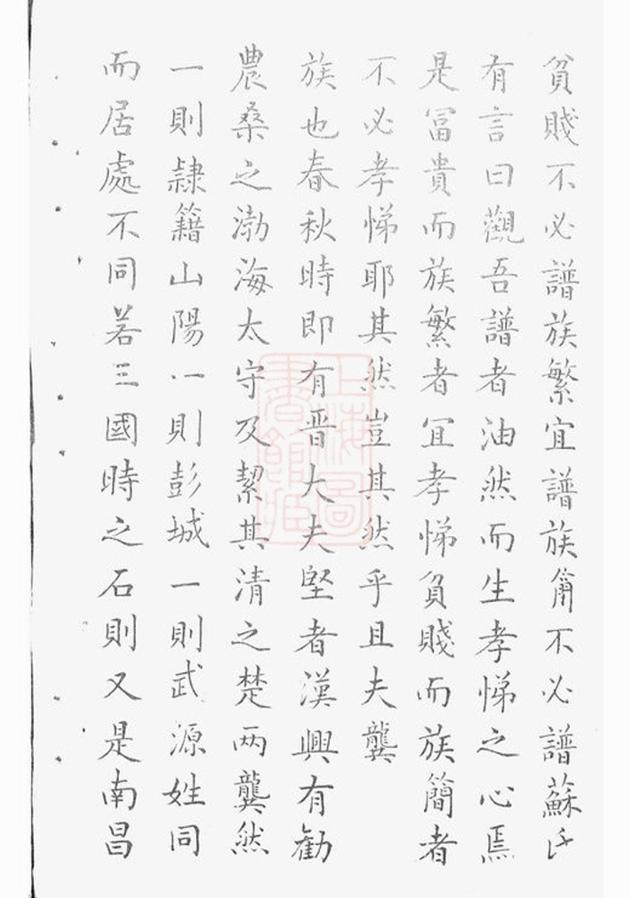 貧賤不必譜族繁宜譜族簡不必譜蘇氏
有言曰觀吾譜者油然而生孝悌之心焉
是冨貴而族繁者冝孝悌貧賤而族簡者
不必孝悌耶其然豈其然乎且夫龔
族也春秋時即有晋大夫堅者漢興有勧
農桑之渤海太守及絜其清之楚两龔然
一則隷籍山陽一則彭城一則武源姓同
而居處不同若三國時之石則又是南昌
上海圖
書館藏